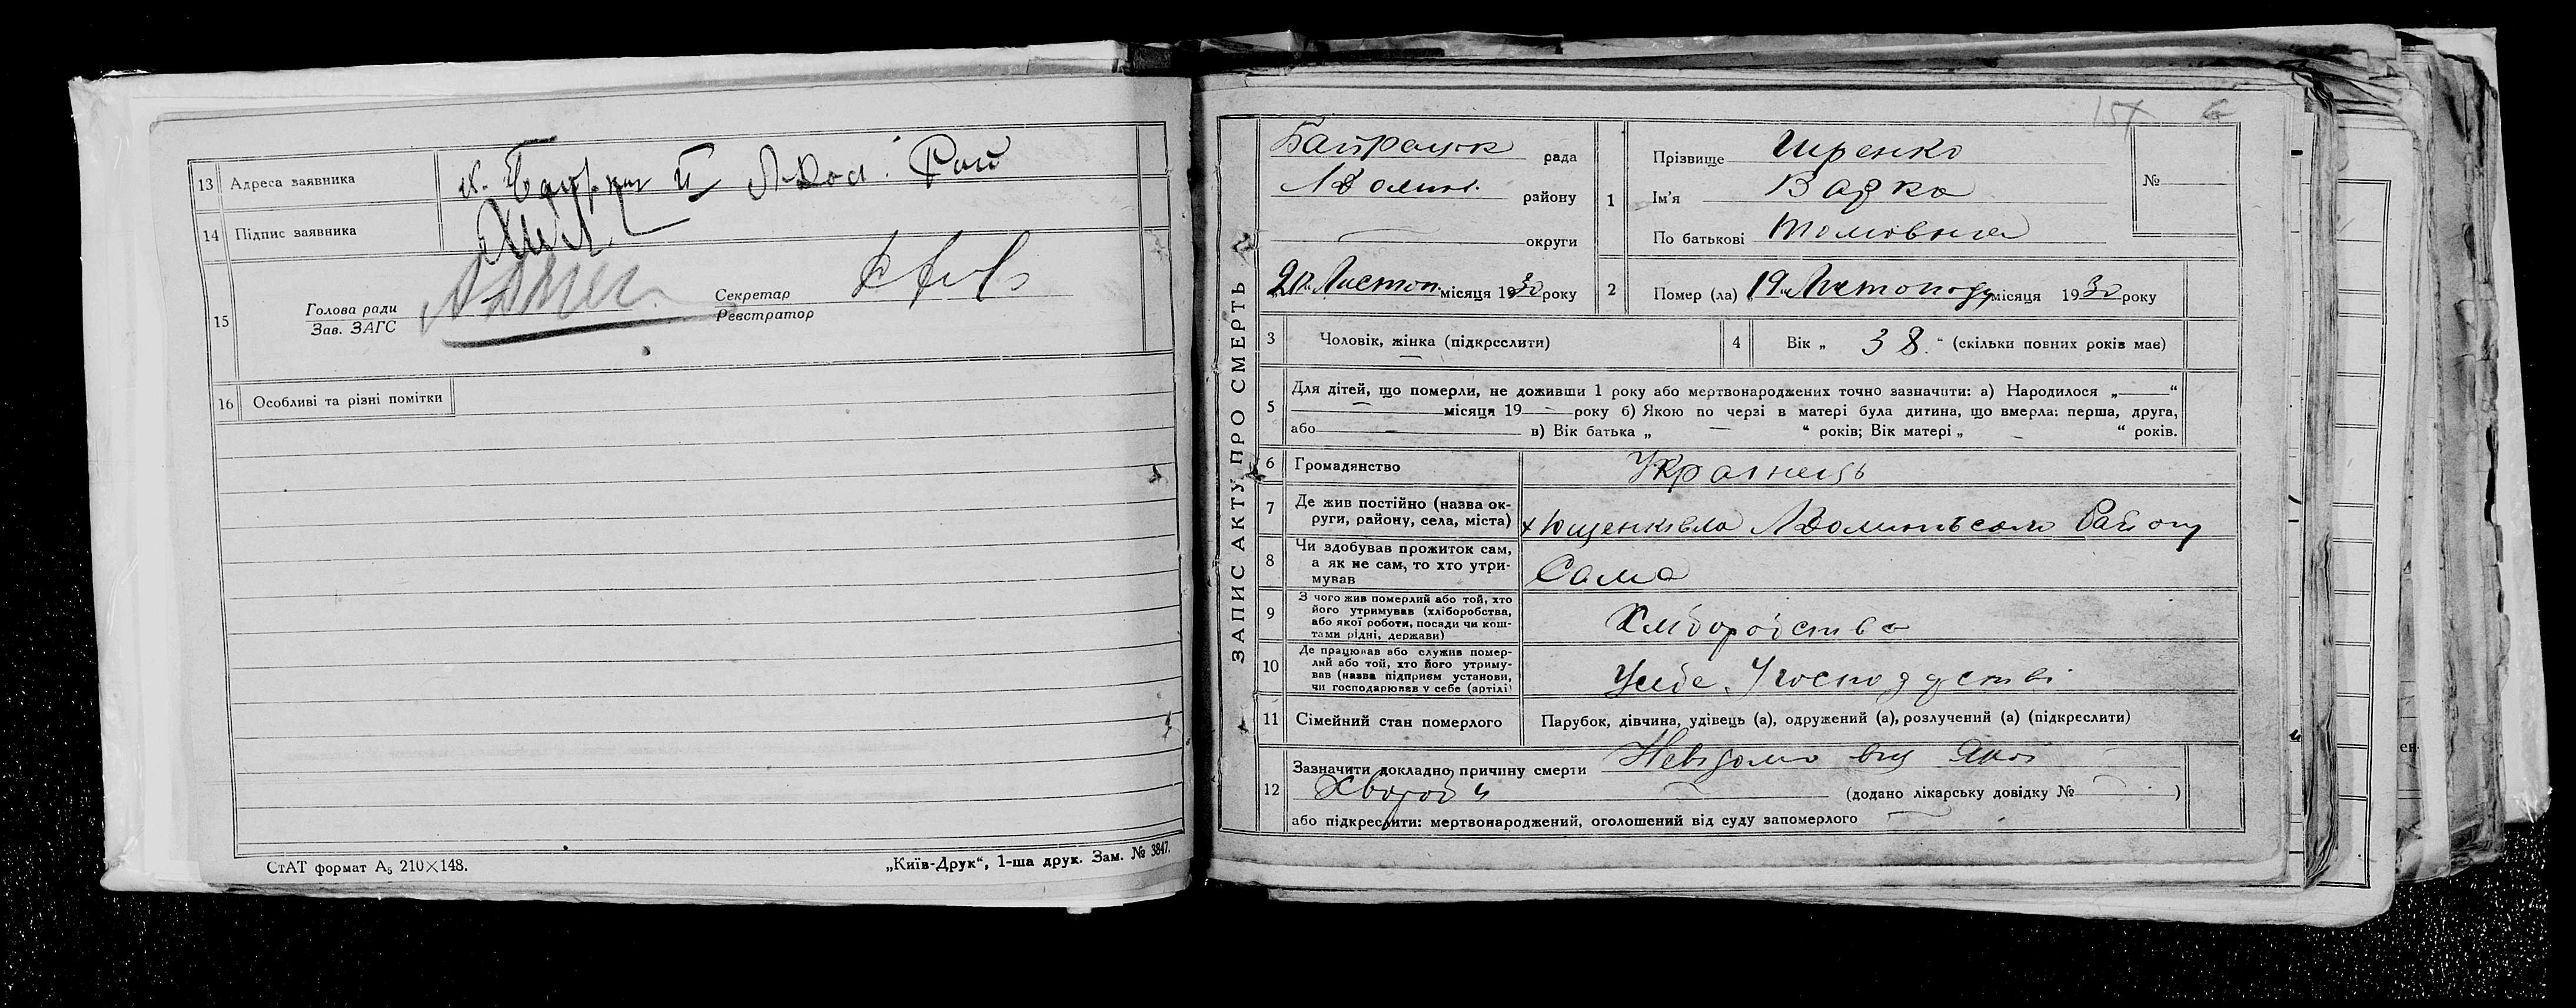 13 Адреса заявника
14 Підпис заявника
15 Голова ради
Зав. ЗАГС
Секретар
Реєстратор
16 Особливі та різні помітки
СтАТ формат А₅ 210×148.
„Київ-Друк“, 1-ша друк. Зам. № 3847.
ЗАПИС АКТУ ПРО СМЕРТЬ
Байрацьк рада
району
округи
20 Листоп. місяця 1930 року
1 Прізвище
Ім'я Варка
По батькові
№
2 Помер (ла) 19 Листопаду місяця 1930 року
3 Чоловік, жінка (підкреслити)
4 Вік „ 38 “ (скільки повних років має)
5 Для дітей, що померли, не доживши 1 року або мертвонароджених точно зазначити: а) Народилося „ “
місяця 19 року б) Якою по черзі в матері була дитина, що вмерла: перша, друга,
або в) Вік батька „ “ років; Вік матері „ “ років.
6 Громадянство Українець
7 Де жив постійно (назва ок-
руги, району, села, міста) х Ющенківка Району
8 Чи здобував прожиток сам,
а як не сам, то хто утри-
мував Сама
9 З чого жив померлий або той, хто
його утримував (хліборобства,
або якої роботи, посади чи кош-
тами рідні, держави) Хліборобство
10 Де працював або служив помер-
лий або той, хто його утриму-
вав (назва підприєм установи,
чи господарював у себе (артілі) Усебе
11 Сімейний стан померлого Парубок, дівчина, удівець (а), одружений (а), розлучений (а) (підкреслити)
12 Зазначити докладно причину смерти Невідомо від якої
Хвороби (додано лікарську довідку № )
або підкреслити: мертвонароджений, оголошений від суду запомерлого